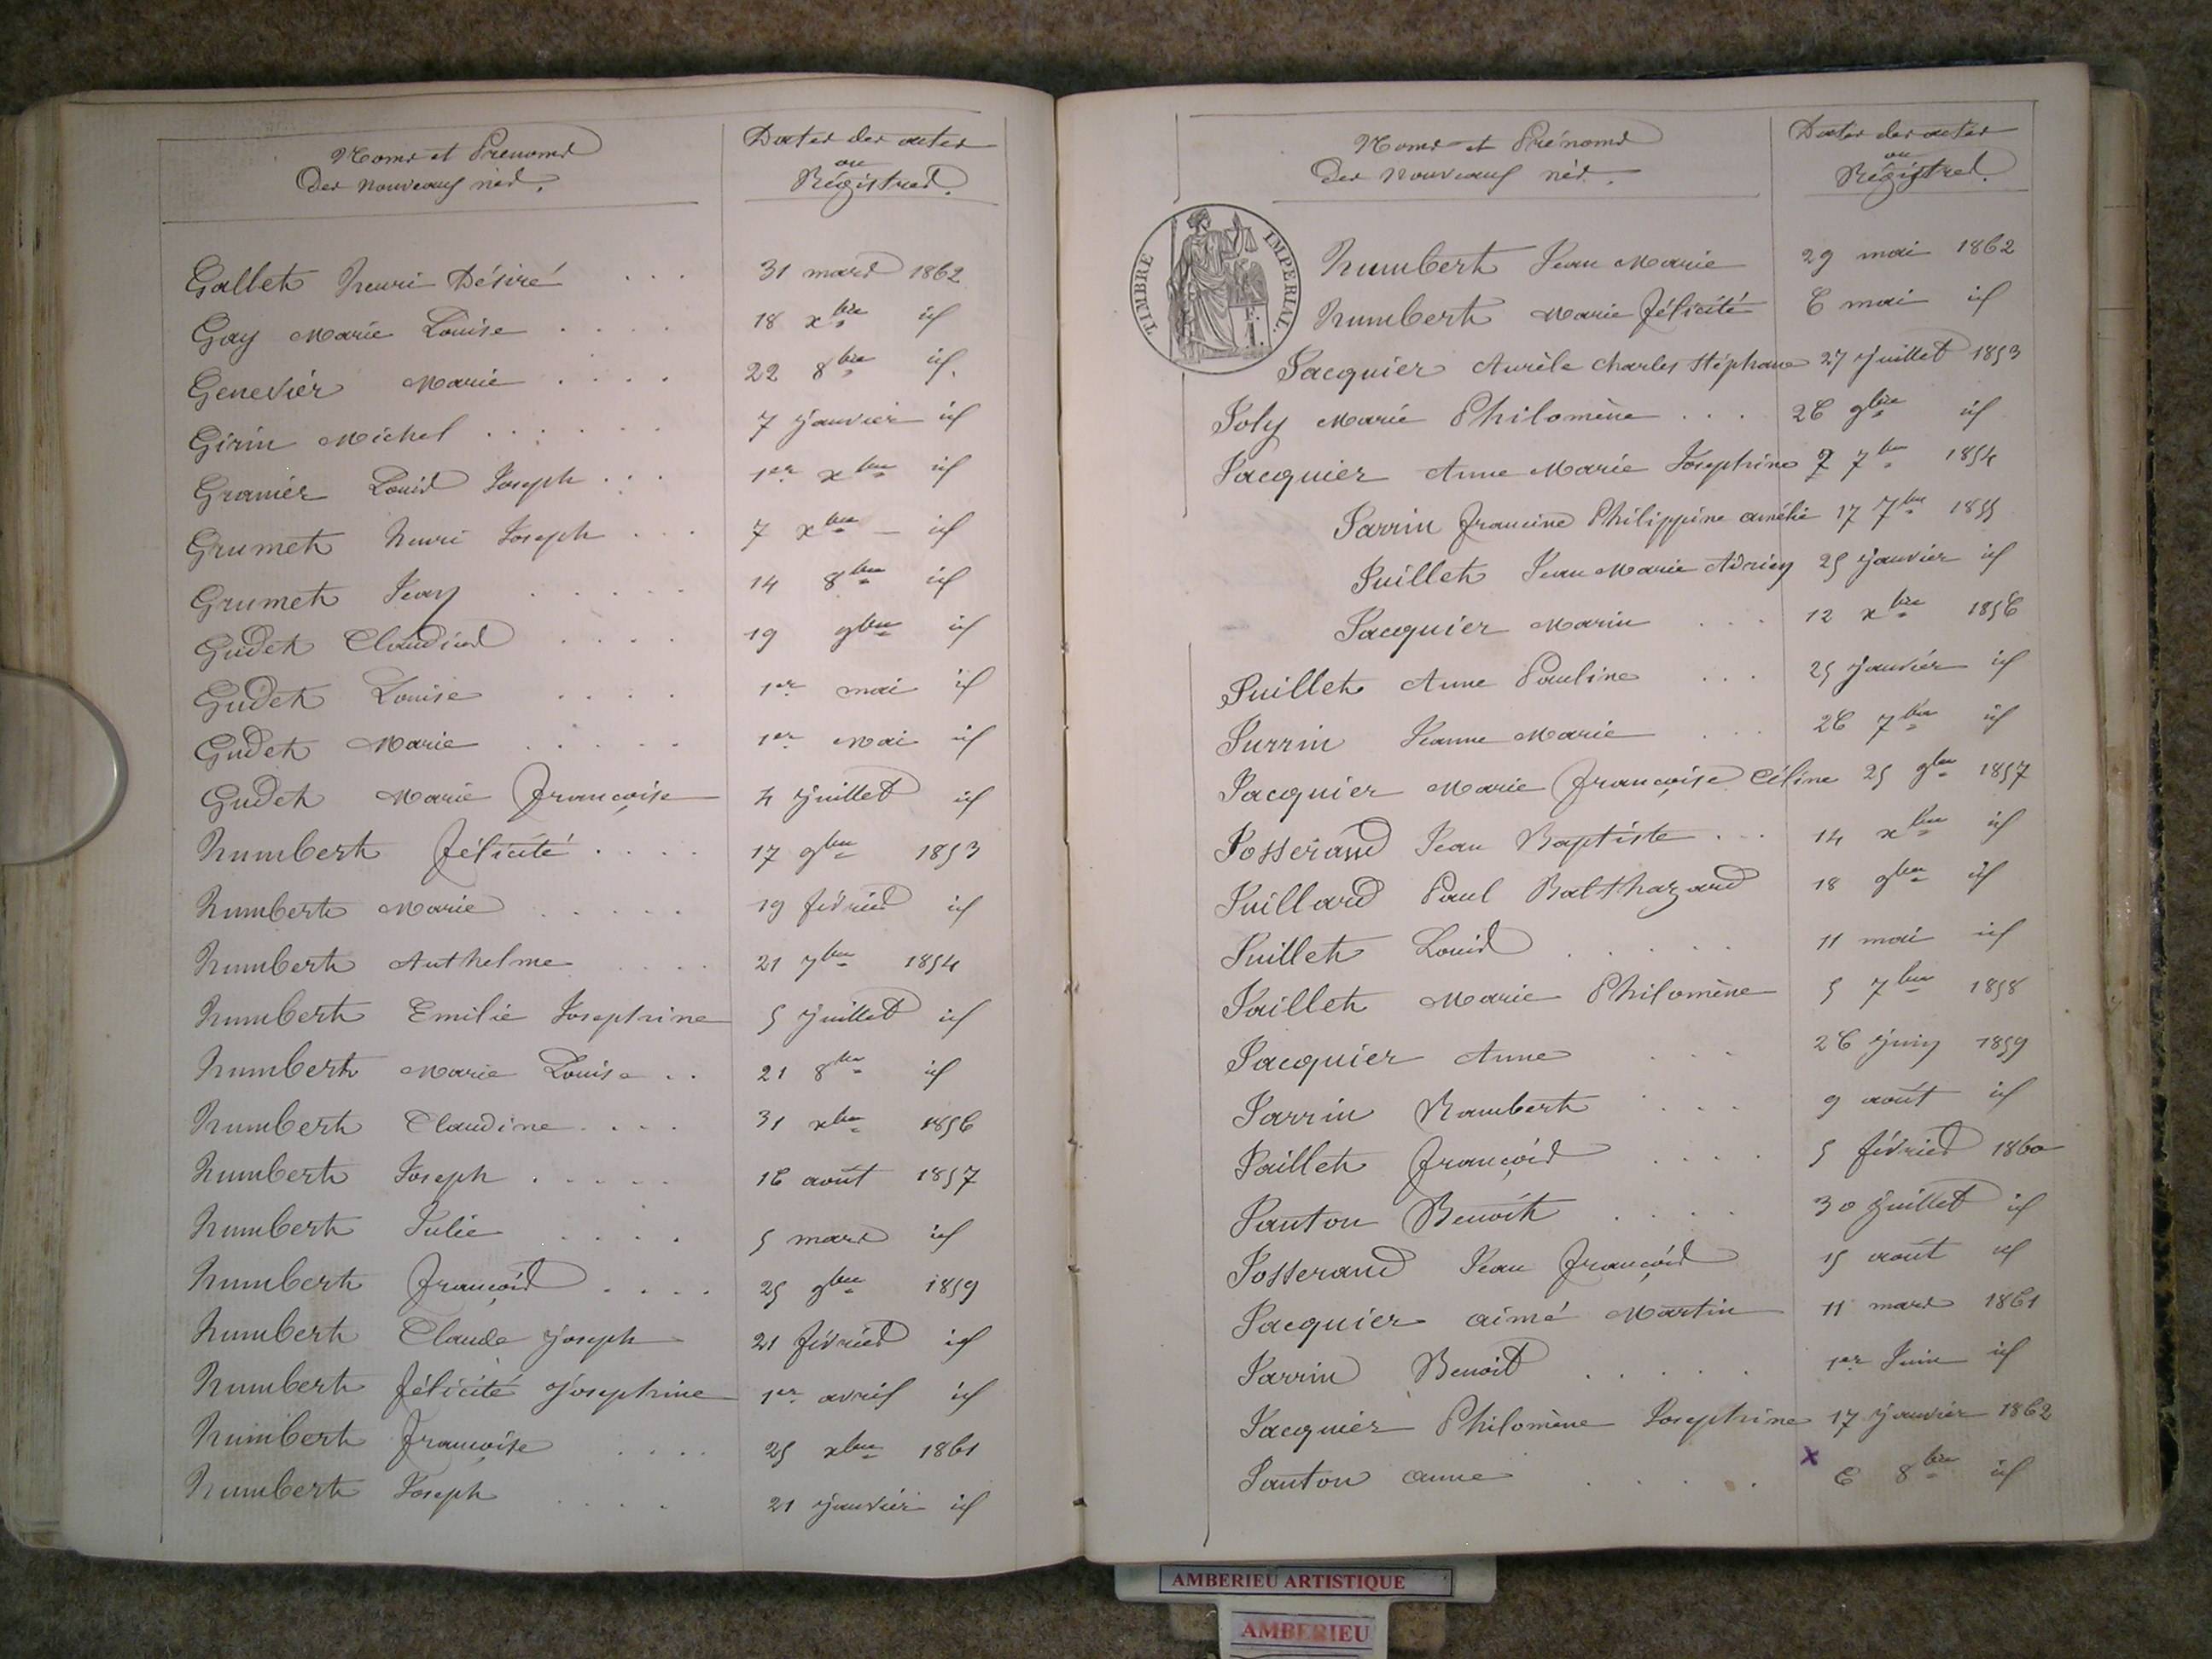 Noms et Prénoms
Des Nouveaux nés.
Dates des actes
au
Régistres.
Gallet henri Désiré . . . 31 mars 1862
Gay Marie Louise . . . . 18 xbre id
Genevier Marie . . . . 22 8bre id.
Girin Michel . . . . . . 7 Janvier id
Granier Louis Joseph . . . 1er xbre id
Grumet henri Joseph . . . 7 xbre — id
Grumet Jean . . . . . 14 8bre id
Gudet Claudius . . . . 19 9bre id
Gudet Louise . . . . 1er mai id
Gudet Marie . . . . . 1er Mai id
Gudet Marie Françoise 4 Juillet id
humbert Félicité . . . . 17 9bre 1853
humbert Marie . . . . . 19 février id
humbert Anthelme . . . . 21 7bre 1854
humbert Emilie Josephine 5 Juillet id
humbert Marie Louise . . 21 8bre id
humbert Claudine . . . . 31 xbre 1856
humbert Joseph . . . . . 16 août 1857
humbert Julie . . . . 5 mars id
humbert François . . . . 25 9bre 1859
humbert Claude Joseph 21 février id
humbert félicité Josephine 1er avril id
humbert Françoise . . . . 25 xbre 1861
humbert Joseph . . . . 21 Janvier id
Noms et Prénoms
Des Nouveaux nés.
Dates des actes
au
Régistres.
TIMBRE IMPERIAL.
humbert Jean Marie 29 mai 1862
humbert Marie Félicité 6 mai id
Jacquier Aurèle Charles Stéphane 27 Juillet 1853
Joly Marie Philomène . . . 26 9bre id
Jacquier Anne Marie Josephine 7 7bre 1854
Jarrin Francine Philippine amélie 17 7bre 1855
Juillet Jean Marie Adrien 25 Janvier id
Jacquier Marin . . . 12 xbre 1856
Juillet Anne Pauline . . . 25 Janvier id
Jurrin Jeanne Marie . . . 26 7bre id
Jacquier Marie Françoise Céline 25 9bre 1857
Josserand Jean Baptiste . . . 14 xbre id
Juillard Paul Balthazard 18 9bre id
Juillet Louis . . . . . 11 mai id
Jaillet Marie Philomène 5 7bre 1858
Jacquier Anne . . . 26 Juin 1859
Jarrin Rambert . . . . 9 août id
Jaillet François . . . . 5 février 1860
Janton Benoît . . . . 30 Juillet id
Josserand Jean François 15 août id
Jacquier aimé Martin 11 mars 1861
Jarrin Benoit . . . . . 1er Juin id
Jacquier Philomène Josephine 17 Janvier 1862
Janton anne . . . . . x 6 8bre id
AMBERIEU ARTISTIQUE
AMBERIEU